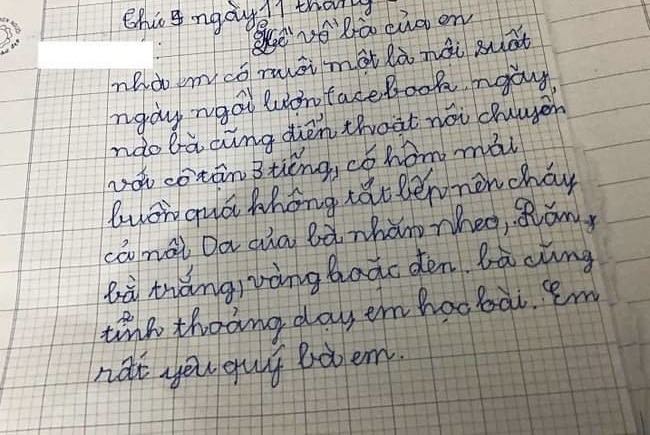 Thứ 5 ngày 11 tháng
Kể về bà của em
nhà em có nuôi một là nôi suốt
ngày ngồi lướn facebook. ngày
nào bà cũng điển thoăt nói chuyện
với cô tận 3 tiếng, có hôm mải
buồn quá không tắt bếp nên cháy
cả nồi Da của bà nhăn nheo, Răn
bà trắng, vàng hoặc đen. bà cũng
tỉnh thoảng dạy em học bài. Em
rất yêu quý bà em.